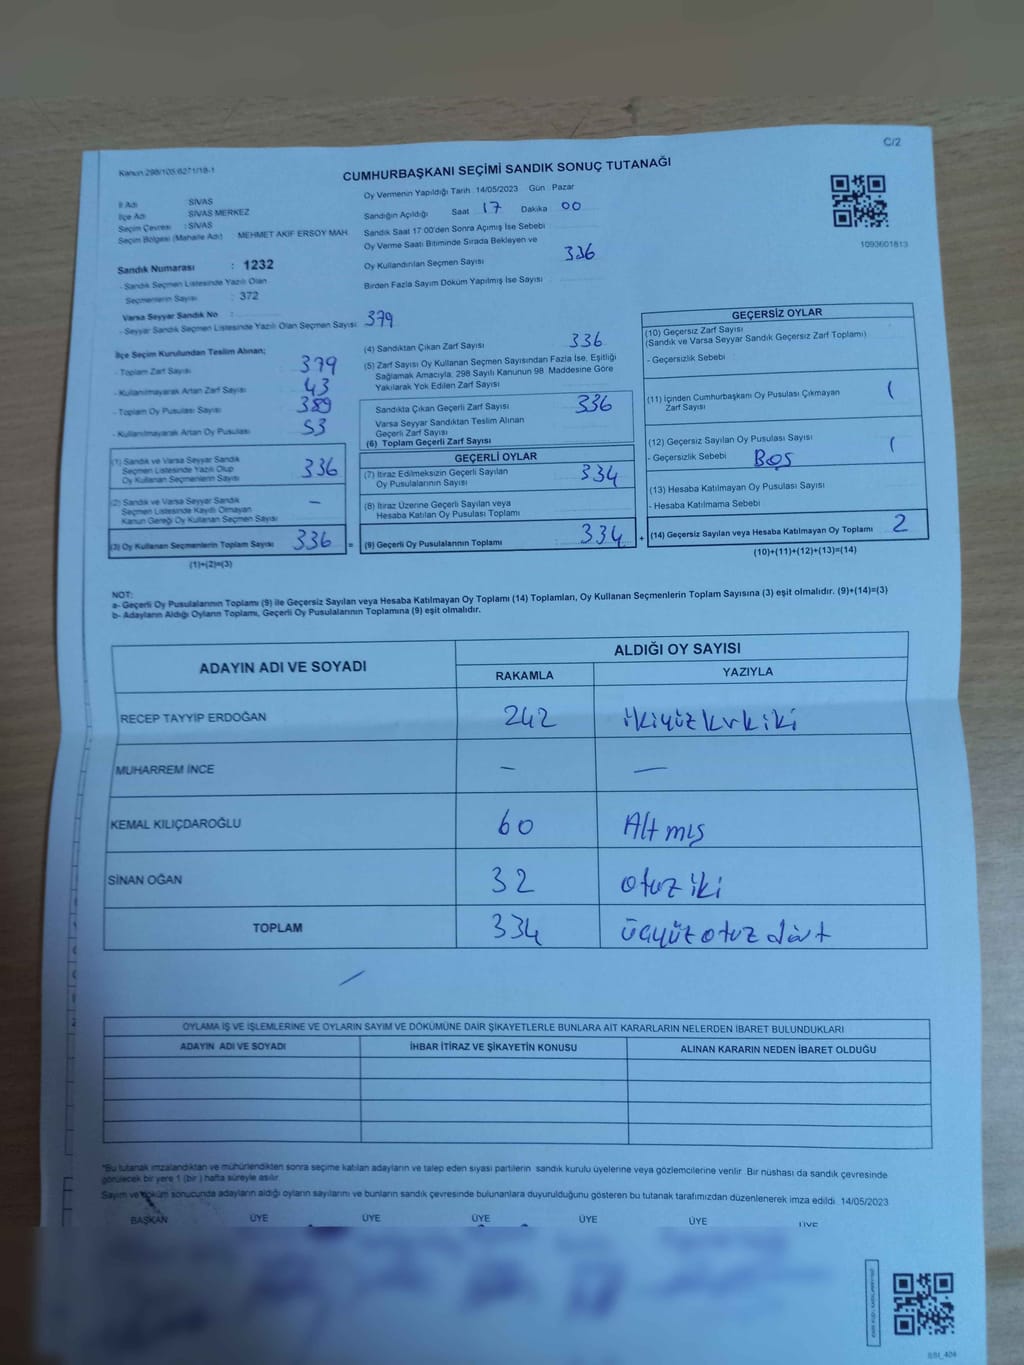 C/2
Kanun 298/105 6271/18-1
CUMHURBAŞKANI SEÇİMİ SANDIK SONUÇ TUTANAĞI
İl Adı SİVAS
İlçe Adı SİVAS MERKEZ
Seçim Çevresi : SİVAS
Seçim Bölgesi (Mahalle Adı) MEHMET AKİF ERSOY MAH.
Sandık Numarası : 1232
- Sandık Seçmen Listesinde Yazılı Olan
Seçmenlerin Sayısı : 372
Varsa Seyyar Sandık No :
- Seyyar Sandık Seçmen Listesinde Yazılı Olan Seçmen Sayısı 379
Oy Vermenin Yapıldığı Tarih 14/05/2023 Gün Pazar
Sandığın Açıldığı Saat 17 Dakika 00
Sandık Saat 17:00'den Sonra Açımış İse Sebebi
Oy Verme Saati Bitiminde Sırada Bekleyen ve
Oy Kullandırılan Seçmen Sayısı 336
Birden Fazla Sayım Döküm Yapılmış İse Sayısı
1093601813
İlçe Seçim Kurulundan Teslim Alınan;
- Toplam Zarf Sayısı 379
- Kullanılmayarak Artan Zarf Sayısı 43
- Toplam Oy Pusulası Sayısı 389
- Kullanılmayarak Artan Oy Pusulası 53
(1) Sandık ve Varsa Seyyar Sandık
Seçmen Listesinde Yazılı Olup
Oy Kullanan Seçmenlerin Sayısı 336
(2) Sandık ve Varsa Seyyar Sandık
Seçmen Listesinde Kayıtlı Olmayan
Kanun Gereği Oy Kullanan Seçmen Sayısı –
(3) Oy Kullanan Seçmenlerin Toplam Sayısı 336 =
(1)+(2)=(3)
(4) Sandıktan Çıkan Zarf Sayısı 336
(5) Zarf Sayısı Oy Kullanan Seçmen Sayısından Fazla İse, Eşitliği
Sağlamak Amacıyla, 298 Sayılı Kanunun 98. Maddesine Göre
Yakılarak Yok Edilen Zarf Sayısı
Sandıkta Çıkan Geçerli Zarf Sayısı 336
Varsa Seyyar Sandıktan Teslim Alınan
Geçerli Zarf Sayısı
(6) Toplam Geçerli Zarf Sayısı
GEÇERLİ OYLAR
(7) İtiraz Edilmeksizin Geçerli Sayılan
Oy Pusulalarının Sayısı 334
(8) İtiraz Üzerine Geçerli Sayılan veya
Hesaba Katılan Oy Pusulası Toplamı
(9) Geçerli Oy Pusulalarının Toplamı 334 +
GEÇERSİZ OYLAR
(10) Geçersiz Zarf Sayısı
(Sandık ve Varsa Seyyar Sandık Geçersiz Zarf Toplamı)
- Geçersizlik Sebebi
(11) İçinden Cumhurbaşkanı Oy Pusulası Çıkmayan
Zarf Sayısı 1
(12) Geçersiz Sayılan Oy Pusulası Sayısı 1
- Geçersizlik Sebebi BOŞ
(13) Hesaba Katılmayan Oy Pusulası Sayısı
- Hesaba Katılmama Sebebi
(14) Geçersiz Sayılan veya Hesaba Katılmayan Oy Toplamı 2
(10)+(11)+(12)+(13)=(14)
NOT:
a- Geçerli Oy Pusulalarının Toplamı (9) ile Geçersiz Sayılan veya Hesaba Katılmayan Oy Toplamı (14) Toplamları, Oy Kullanan Seçmenlerin Toplam Sayısına (3) eşit olmalıdır. (9)+(14)=(3)
b- Adayların Aldığı Oyların Toplamı, Geçerli Oy Pusulalarının Toplamına (9) eşit olmalıdır.
ADAYIN ADI VE SOYADI ALDIĞI OY SAYISI
RAKAMLA YAZIYLA
RECEP TAYYİP ERDOĞAN 242 ikiyüzkırkiki
MUHARREM İNCE – –
KEMAL KILIÇDAROĞLU 60 Altmış
SİNAN OĞAN 32 otuziki
TOPLAM 334 üçyüzotuzdört
OYLAMA İŞ VE İŞLEMLERİNE VE OYLARIN SAYIM VE DÖKÜMÜNE DAİR ŞİKAYETLERLE BUNLARA AİT KARARLARIN NELERDEN İBARET BULUNDUKLARI
ADAYIN ADI VE SOYADI İHBAR İTİRAZ VE ŞİKAYETİN KONUSU ALINAN KARARIN NEDEN İBARET OLDUĞU
*Bu tutanak imzalandıktan ve mühürlendikten sonra seçime katılan adayların ve talep eden siyasi partilerin sandık kurulu üyelerine veya gözlemcilerine verilir. Bir nüshası da sandık çevresinde
görülecek bir yere 1 (bir) hafta süreyle asılır.
Sayım ve döküm sonucunda adayların aldığı oyların sayılarını ve bunların sandık çevresinde bulunanlara duyurulduğunu gösteren bu tutanak tarafımızdan düzenlenerek imza edildi. 14/05/2023
BAŞKAN ÜYE ÜYE ÜYE ÜYE ÜYE ÜYE